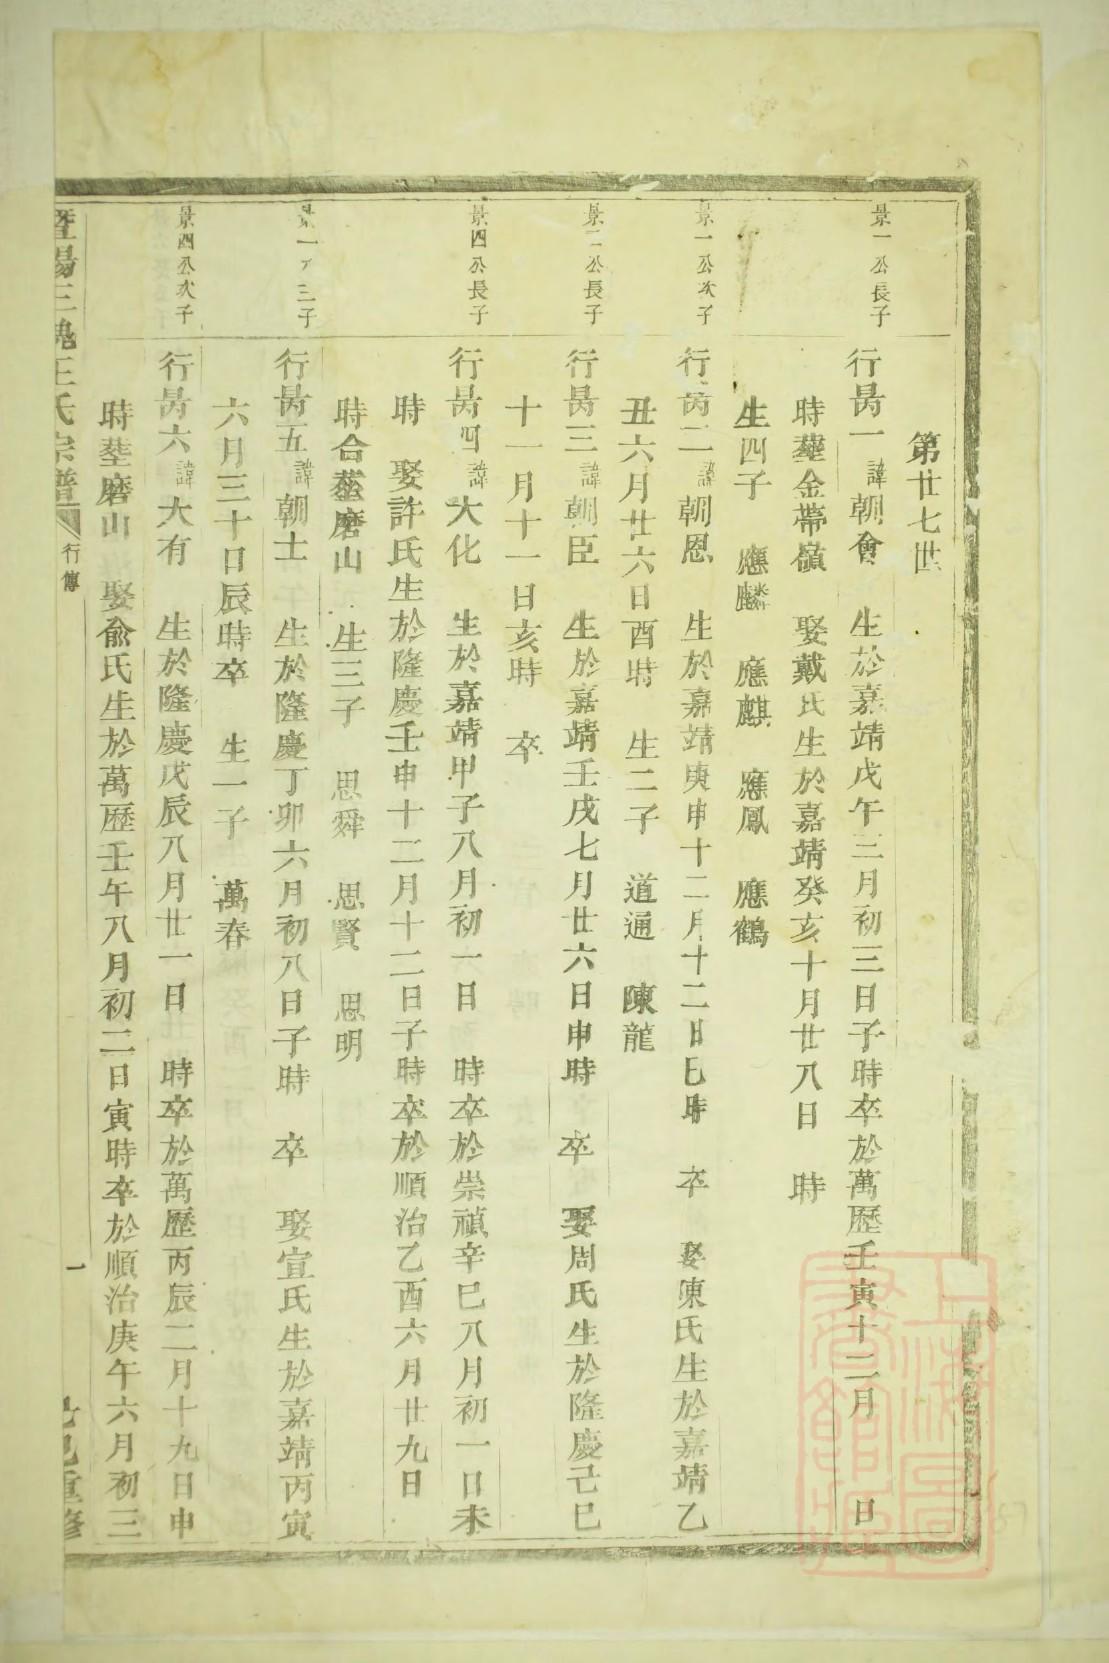 第廿七世
景一公長子
行昺一諱朝會 生於嘉靖戊午三月初三日子時卒於萬歷壬寅十二月 日
時塟金帶嶺 娶戴氏生於嘉靖癸亥十月廿八日 時
生四子 應麟 應麒 應鳳 應鶴
景一公次子
行昺二諱朝恩 生於嘉靖庚申十二月十二日巳時 卒 娶陳氏生於嘉靖乙
丑六月廿六日酉時 生二子 道通 陳龍
景二公長子
行昺三諱朝臣 生於嘉靖壬戌七月廿六日申時 卒 娶周氏生於隆慶己巳
十一月十一日亥時 卒
景四公長子
行昺四諱大化 生於嘉靖甲子八月初一日 時卒於崇禎辛巳八月初一日未
時 娶許氏生於隆慶壬申十二月十二日子時卒於順治乙酉六月廿九日
時合塟磨山 生三子 思舜 思賢 思明
景一公三子
行昺五諱朝士 生於隆慶丁卯六月初八日子時 卒 娶宣氏生於嘉靖丙寅
六月三十日辰時卒 生一子 萬春
景四公次子
行昺六諱大有 生於隆慶戊辰八月廿一日 時卒於萬歷丙辰二月十九日申
時塟磨山 娶俞氏生於萬歷壬午八月初二日寅時卒於順治庚午六月初三
暨陽三槐王氏宗譜 行傳 一 重修
上海圖書館藏